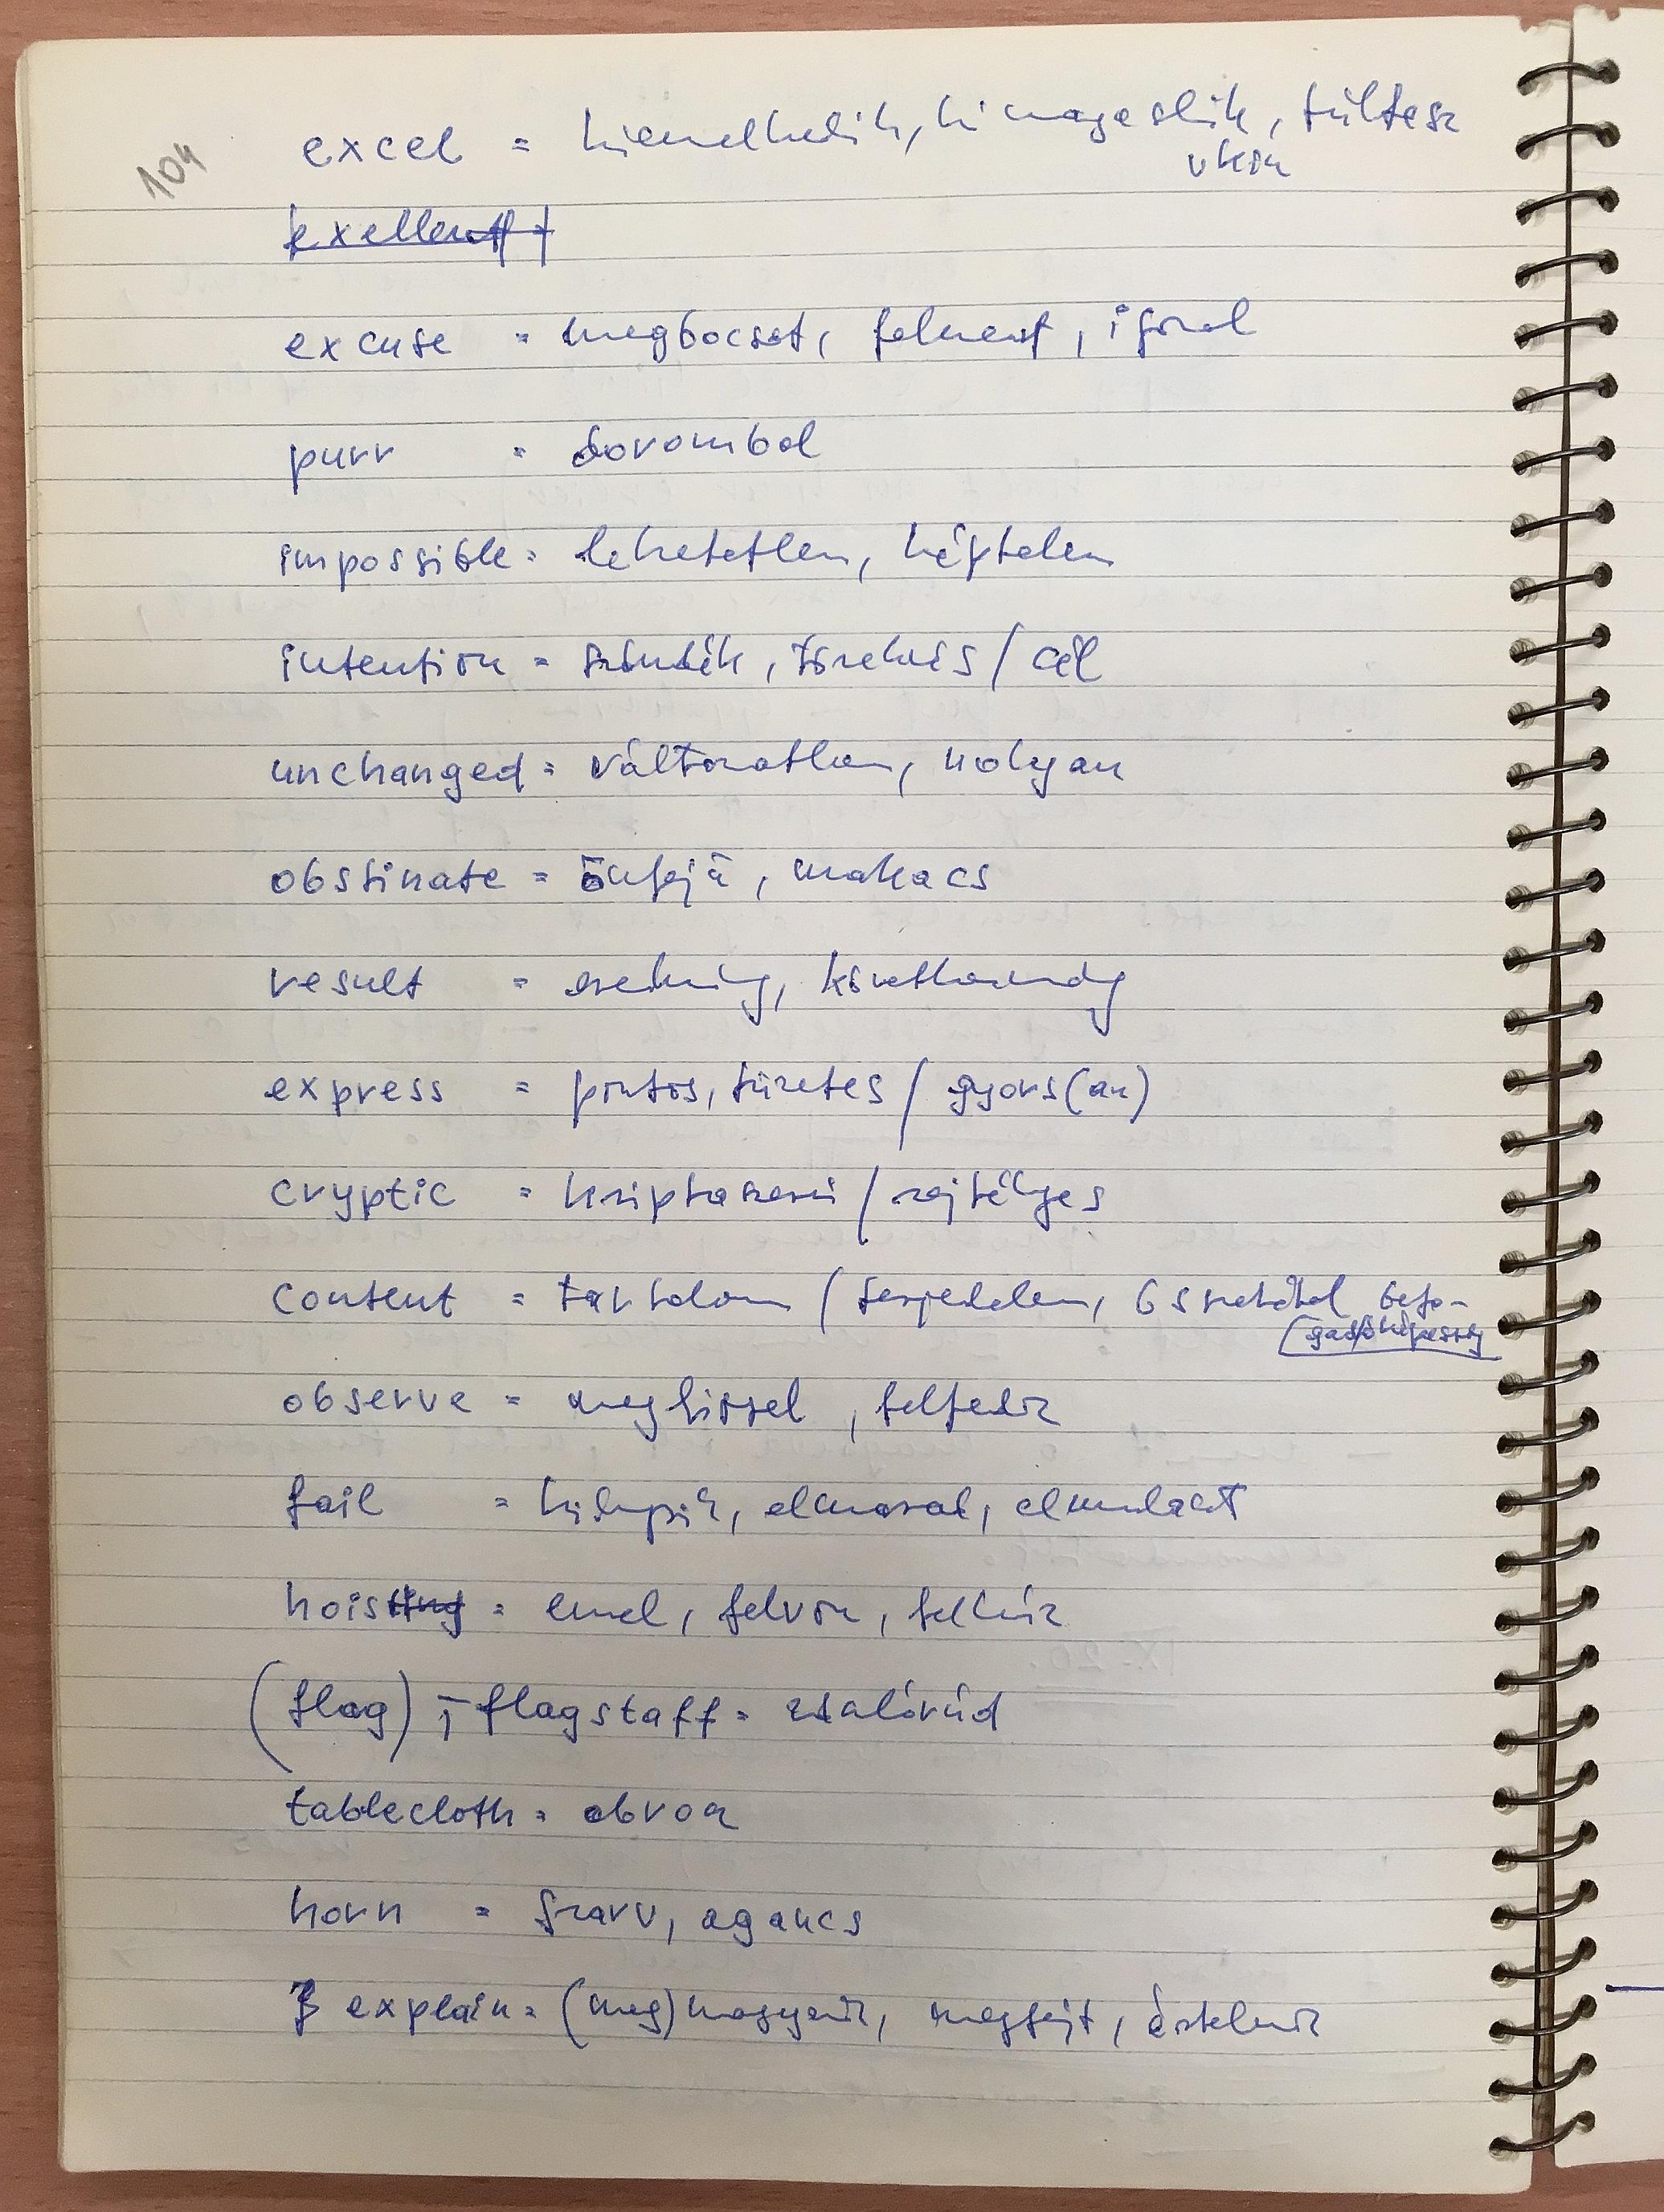 104
excel = kiemelkedik, kimagaslik, túltesz
vkin
exellent
excuse = megbocsát, felment, igazol
purr = dorombol
impossible = lehetetlen, képtelen
intention = szándék, törekvés / cél
unchanged = változatlan, ugyan
obstinate = önfejű, makacs
result = eredmény, következmény
express = pontos, tüzetes / gyors(an)
cryptic = kriptaszerű / rejtélyes
content = tartalom / terjedelem, befo-
gadóképesség
observe = megfigyel, felfedez
fail = kifogy, elmarad, elmulaszt
hoisting = emel, felvon, felhúz
(flag) ; flagstaff = zászlórúd
tablecloth = abrosz
horn = szarv, agancs
explain = (meg)magyaráz, megfejt, értelmez